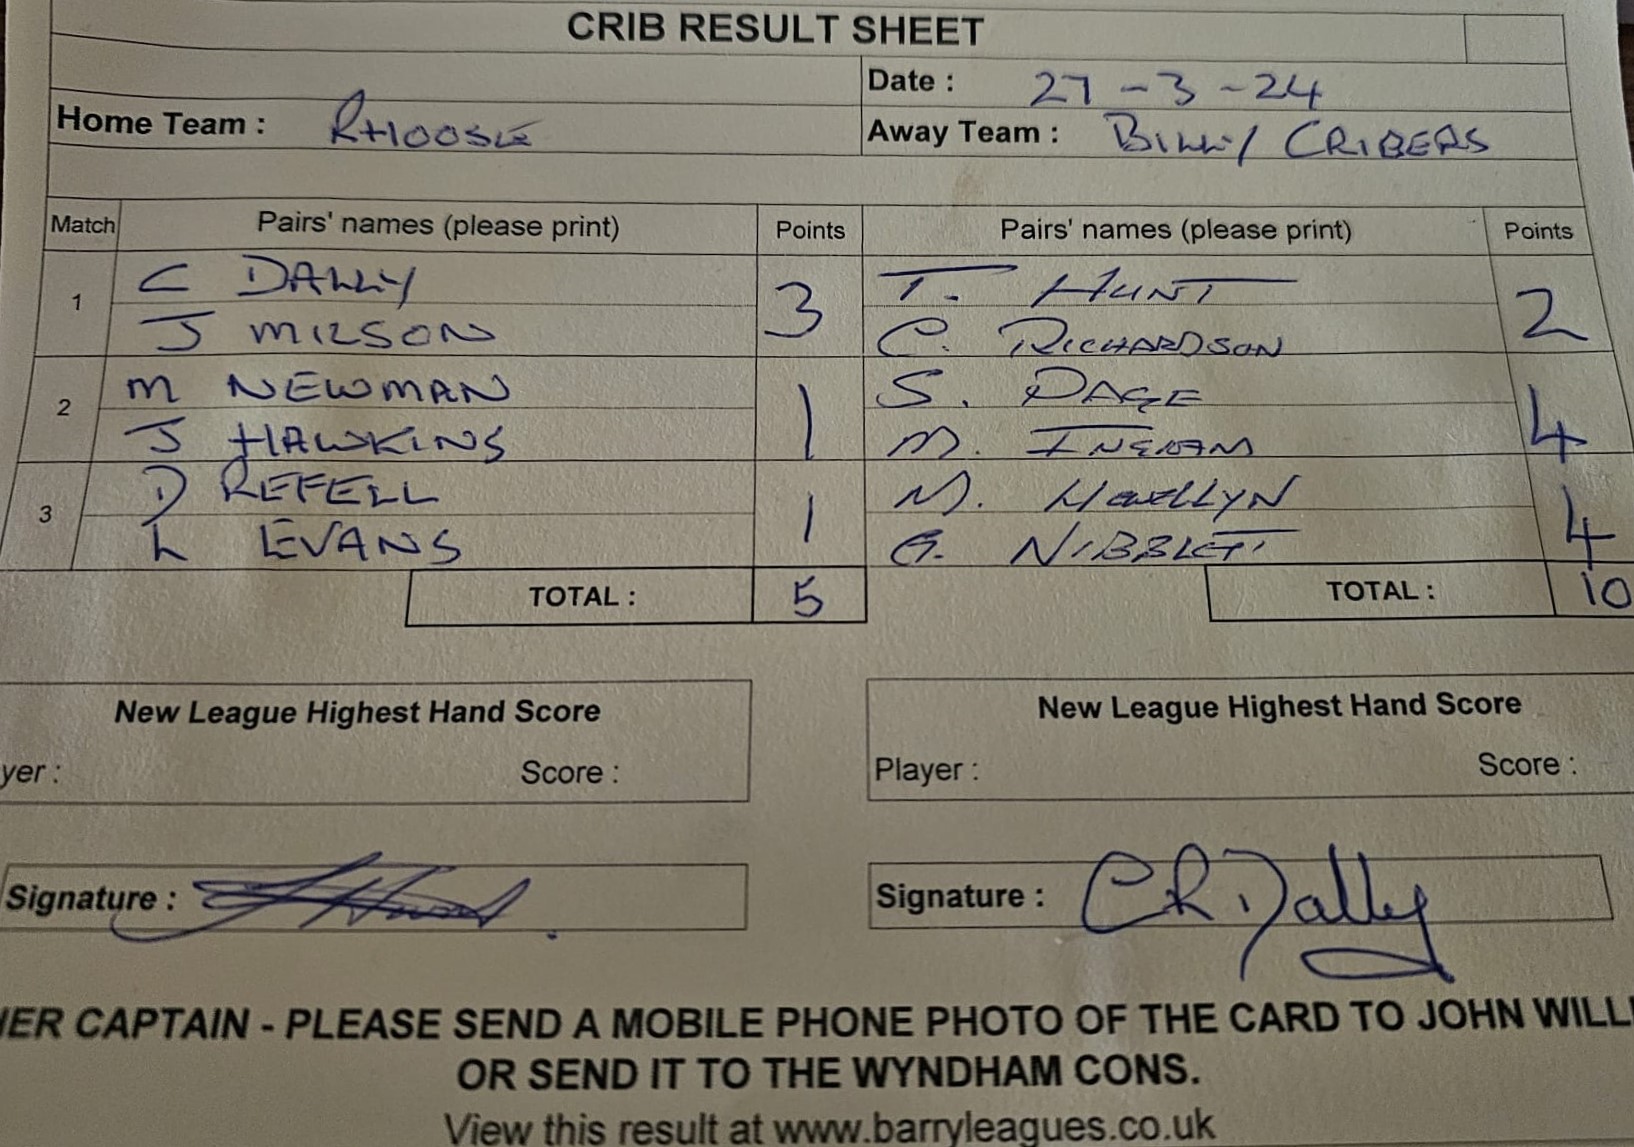 CRIB RESULT SHEET
Date : 27-3-24
Home Team : RHOOSE
Away Team : BILLY CRIBERS
Match Pairs' names (please print) Points Pairs' names (please print) Points
1 C DALLY 3 T. HUNT 2
J MILSON C. RICHARDSON
2 M NEWMAN 1 S. PAGE 4
J HAWKINS M. INGRAM
3 D REFELL 1 M. 4
L EVANS G. NIBBLETT
TOTAL : 5 TOTAL : 10
New League Highest Hand Score New League Highest Hand Score
yer : Score : Player : Score :
Signature : Signature : CR Dally
ER CAPTAIN - PLEASE SEND A MOBILE PHONE PHOTO OF THE CARD TO JOHN WILLI
OR SEND IT TO THE WYNDHAM CONS.
View this result at www.barryleagues.co.uk